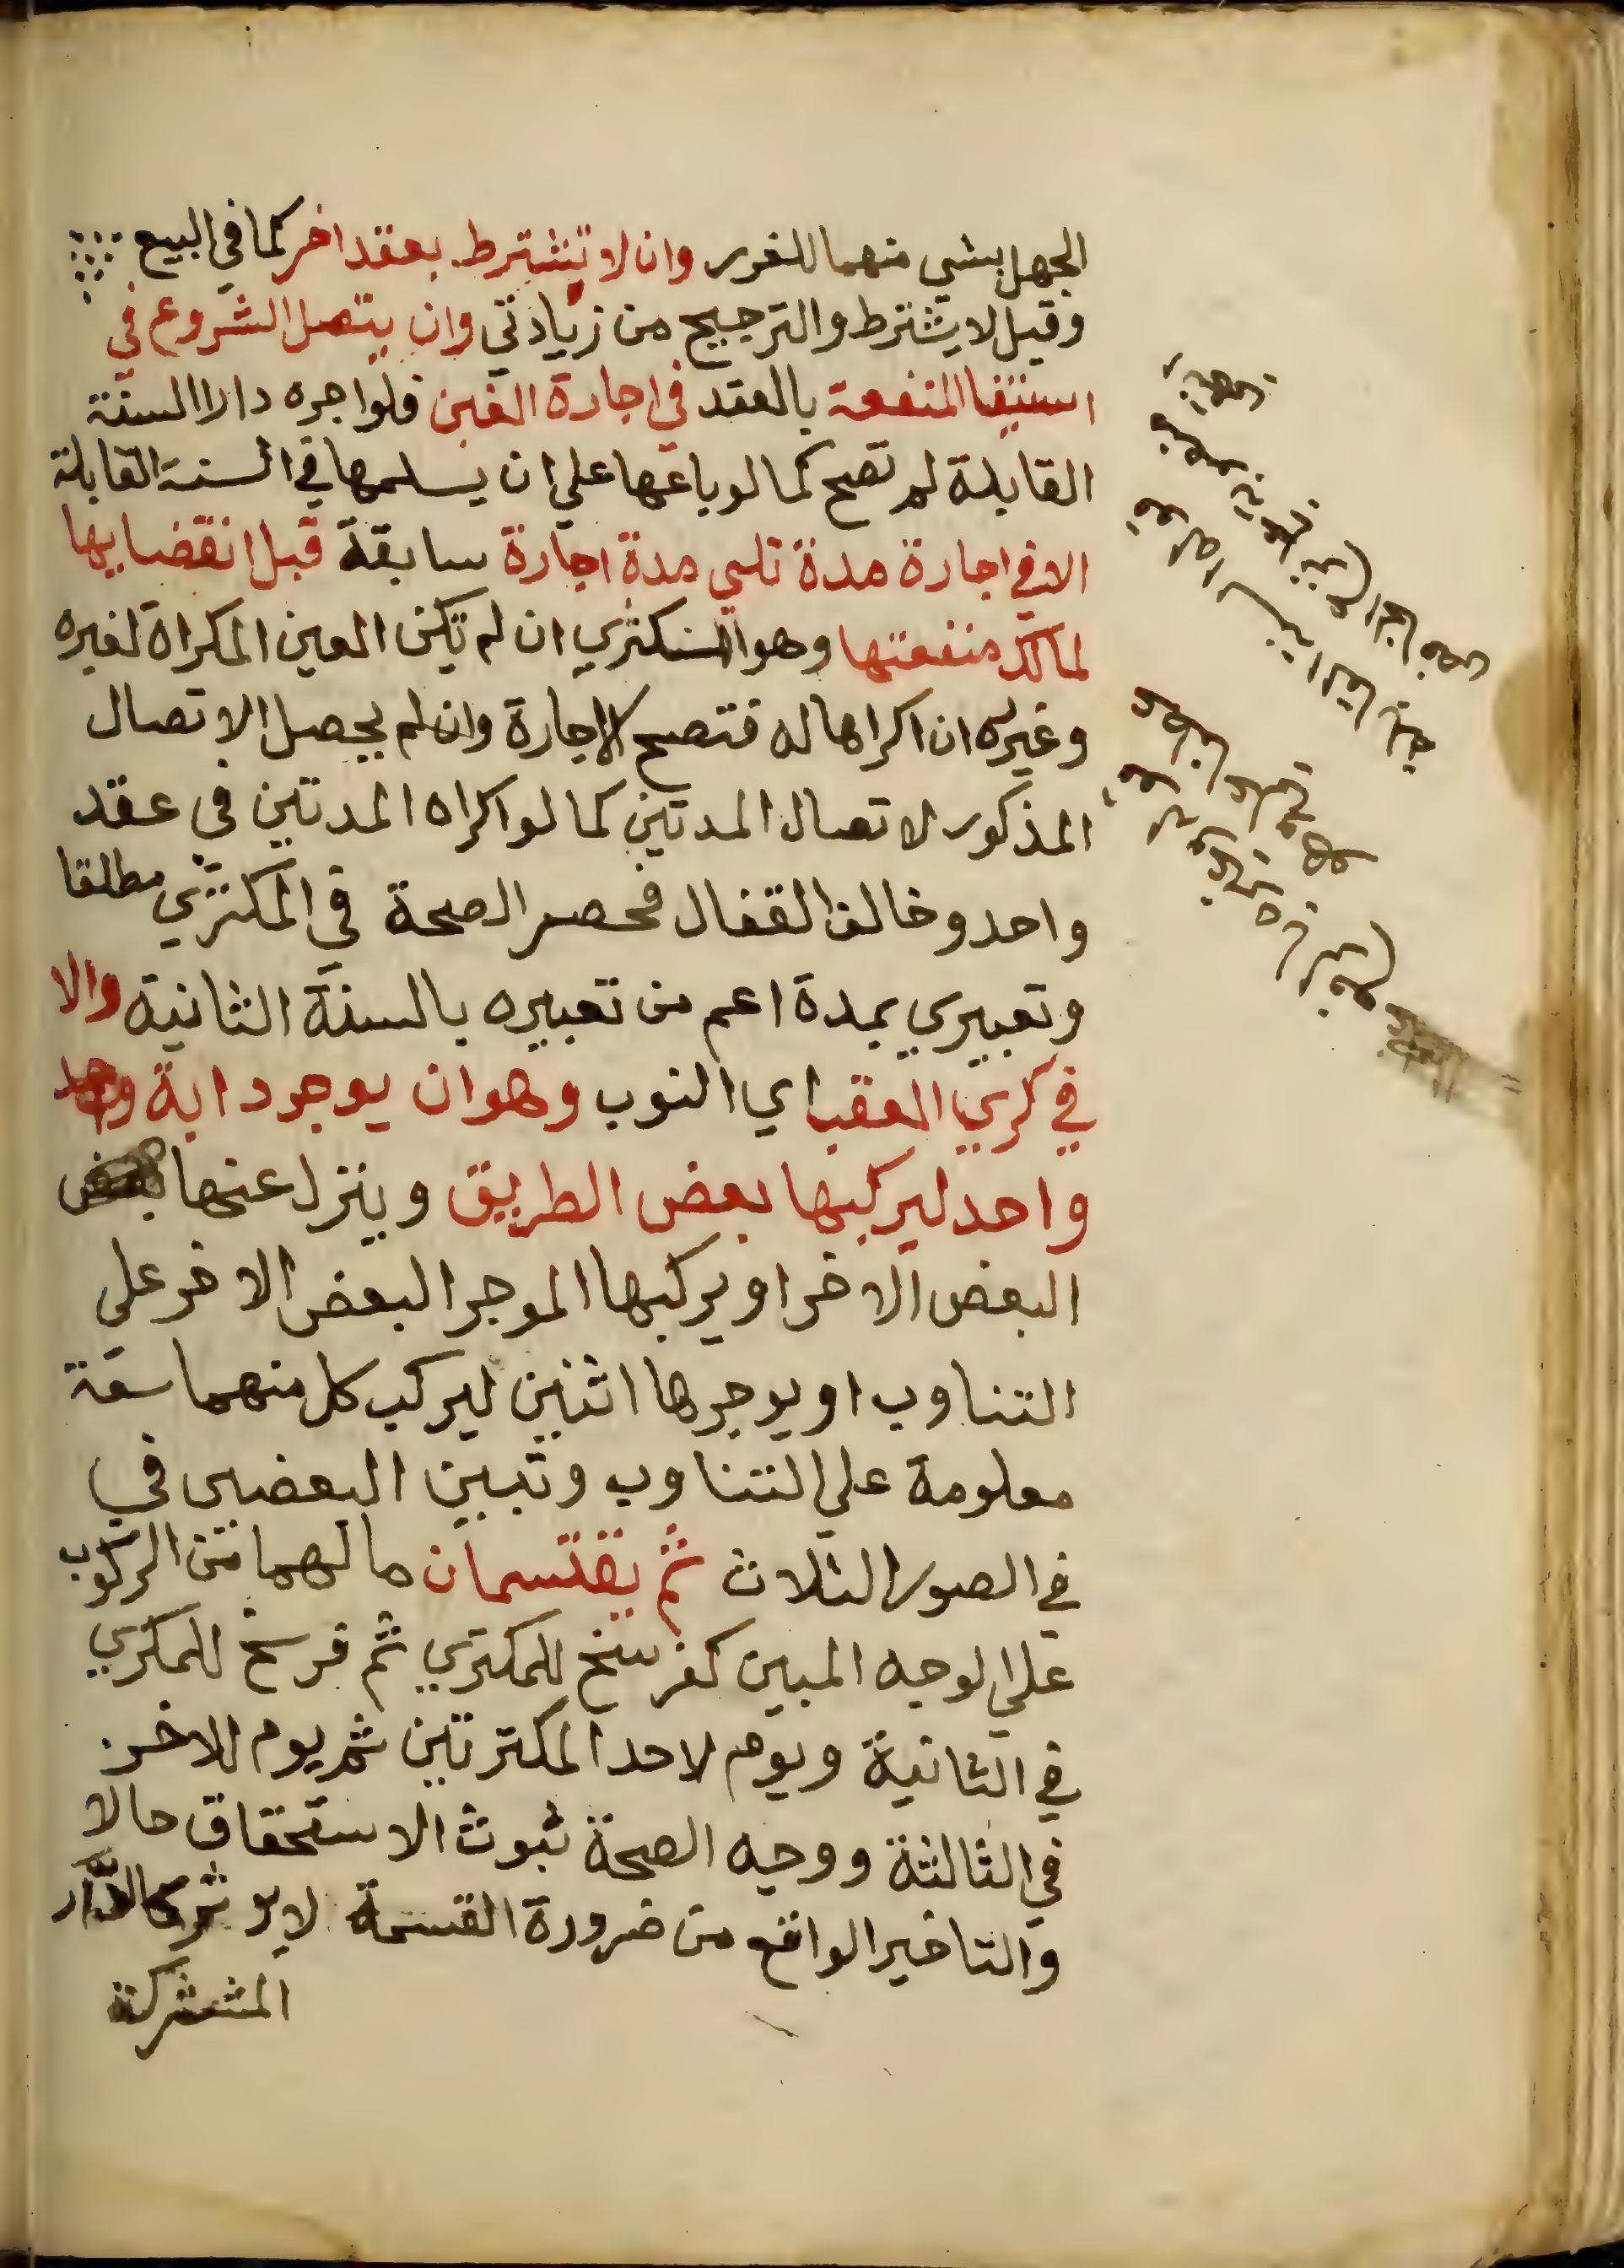 الجهل بشي منهما للغرر وان لا تشترط بعقد اخر كما في البيع
وقيل لا يشترط والترجيح من زيادتي وان يتصل الشروع في
استيفا المنفعة بالعقد في اجارة العين فلو اجره دارا السنة
القابلة لم تصح كما لو باعها علي ان يسلمها في السنة القابلة
الا في اجارة مدة تلي مدة اجارة سابقة قبل انقضايها
لمالك منفعتها وهو المستكتري ان لم تكن العين المكراة لغيره
وغيره ان اكراها له فتصح الاجارة وان لم يحصل الاتصال
المذكور لاتصال المدتين كما لو اكراه المدتين في عقد
واحد وخالف القفال فحصر الصحة في المكتري مطلقا
وتعبيري بمدة اعم من تعبيره بالسنة الثانية والا
في كري العقب اي النوب وهو ان يوجر دابة
واحد ليركبها بعض الطريق وينزل عنها
البعض الاخر او يركبها الموجر البعض الاخر علي
التناوب او يوجرها اثنين ليركب كل منهما
معلومة علي التناوب وتبين البعضين في
في الصور الثلاث ثم يقتسمان مالهما من الركوب
علي الوجه المبين كفرسخ للمكتري ثم فرسخ للمكري
في الثانية ويوم لاحد المكترتين ثم يوم للاخر
في الثالثة ووجه الصحة ثبوت الاستحقاق حالا
والتاخير الواقع من ضرورة القسمة لا يوثر كالدار
المشتركة